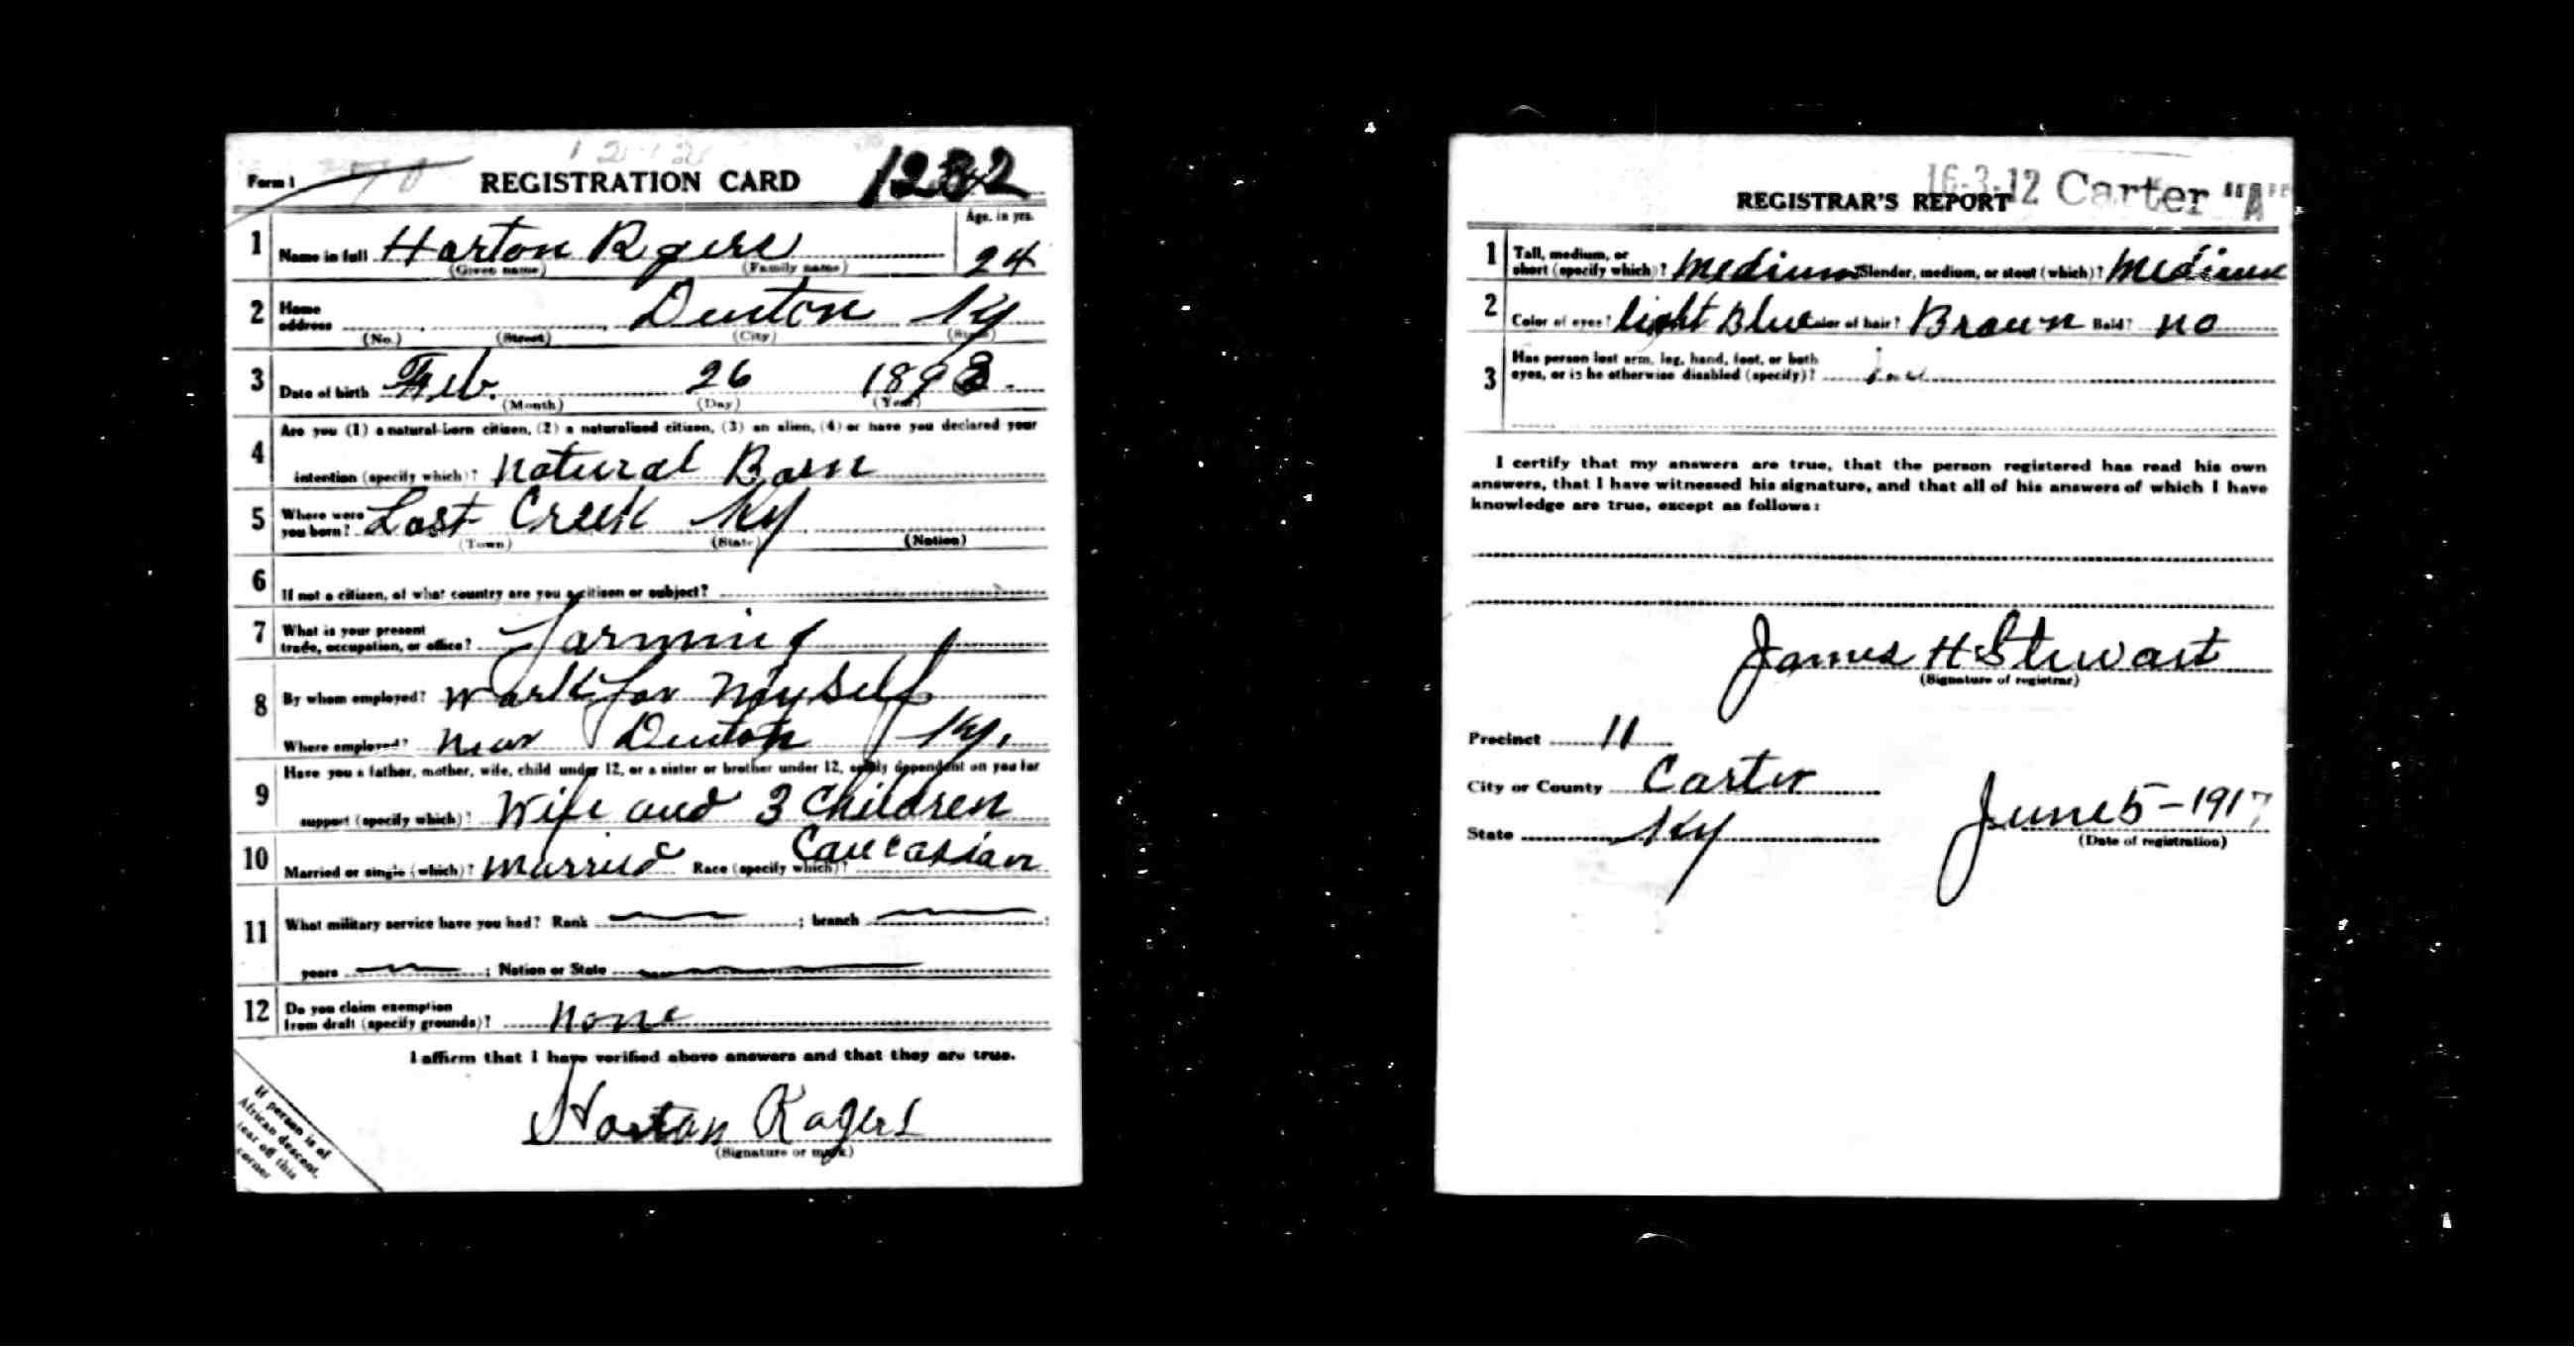 Form 1 REGISTRATION CARD
1 Name in full Horton Rgers Age, in yrs. 24
(Given name) (Family name)
2 Home address Denton Ky
(No.) (Street) (City) (State)
3 Date of birth Feb. 26 1893.
(Month) (Day) (Year)
4 Are you (1) a natural-born citizen, (2) a naturalized citizen, (3) an alien, (4) or have you declared your
intention (specify which)? Natural Born
5 Where were you born? Lost Creek Ky
(Town) (State) (Nation)
6 If not a citizen, of what country are you a citizen or subject?
7 What is your present
trade, occupation, or office? Farming
8 By whom employed? Work for Myself
Where employed? Near Denton Ky.
9 Have you a father, mother, wife, child under 12, or a sister or brother under 12, solely dependent on you for
support (specify which)? Wife and 3 Children
10 Married or single (which)? Married Race (specify which)? Caucasian
11 What military service have you had? Rank ; branch ;
years ; Nation or State
12 Do you claim exemption
from draft (specify grounds)? None
I affirm that I have verified above answers and that they are true.
Horton Rogers
(Signature or mark)
If person is of
African descent,
tear off this
corner
16-3-12 Carter "A"
REGISTRAR'S REPORT
1 Tall, medium, or
short (specify which)? Medium Slender, medium, or stout (which)? Medium
2 Color of eyes? light Blue Color of hair? Brown Bald? no
3 Has person lost arm, leg, hand, foot, or both
eyes, or is he otherwise disabled (specify)?
I certify that my answers are true, that the person registered has read his own
answers, that I have witnessed his signature, and that all of his answers of which I have
knowledge are true, except as follows:
James H Stewart
(Signature of registrar)
Precinct 11
City or County Carter
State Ky
June 5-1917
(Date of registration)